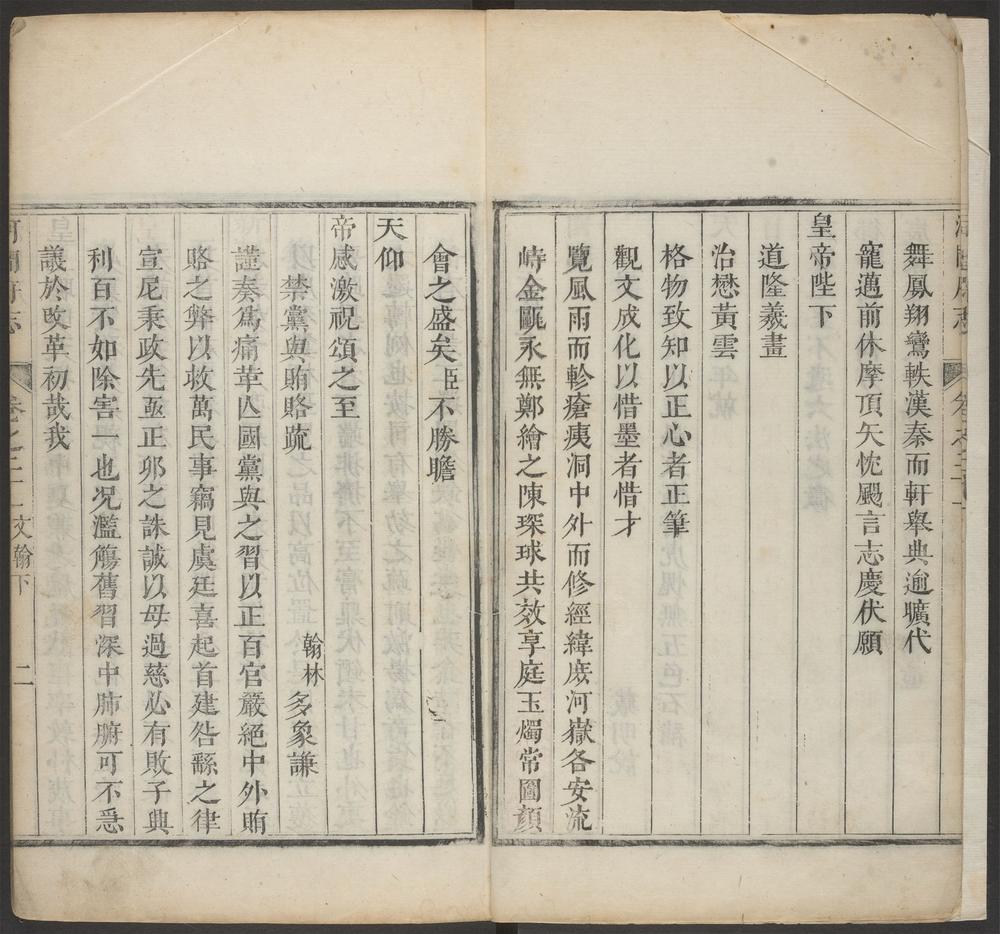 舞鳳翔鸞軼漢秦而軒舉典逾曠代
寵邁前休摩頂矢忱颺言志慶伏願
皇帝陛下
道隆羲畫
治懋黃雲
格物致知以正心者正筆
觀文成化以惜墨者惜才
覽風雨而軫瘡痍洞中外而修經緯庶河嶽各安流
峙金甌永無鄭繪之陳琛球共效享庭玉燭常圖顏
會之盛矣臣不勝瞻
天仰
帝感激祝頌之至
禁黨與賄賂疏
翰林 多象謙
謹奏為痛革亡國黨與之習以正百官嚴絕中外賄
賂之弊以救萬民事竊見虞廷喜起首建咎繇之律
宣尼秉政先亟正卯之誅誠以母過慈必有敗子興
利百不如除害一也况濫觴舊習深中肺腑可不亟
議於改革初哉我
河間府志
卷之二十一 文翰下 二